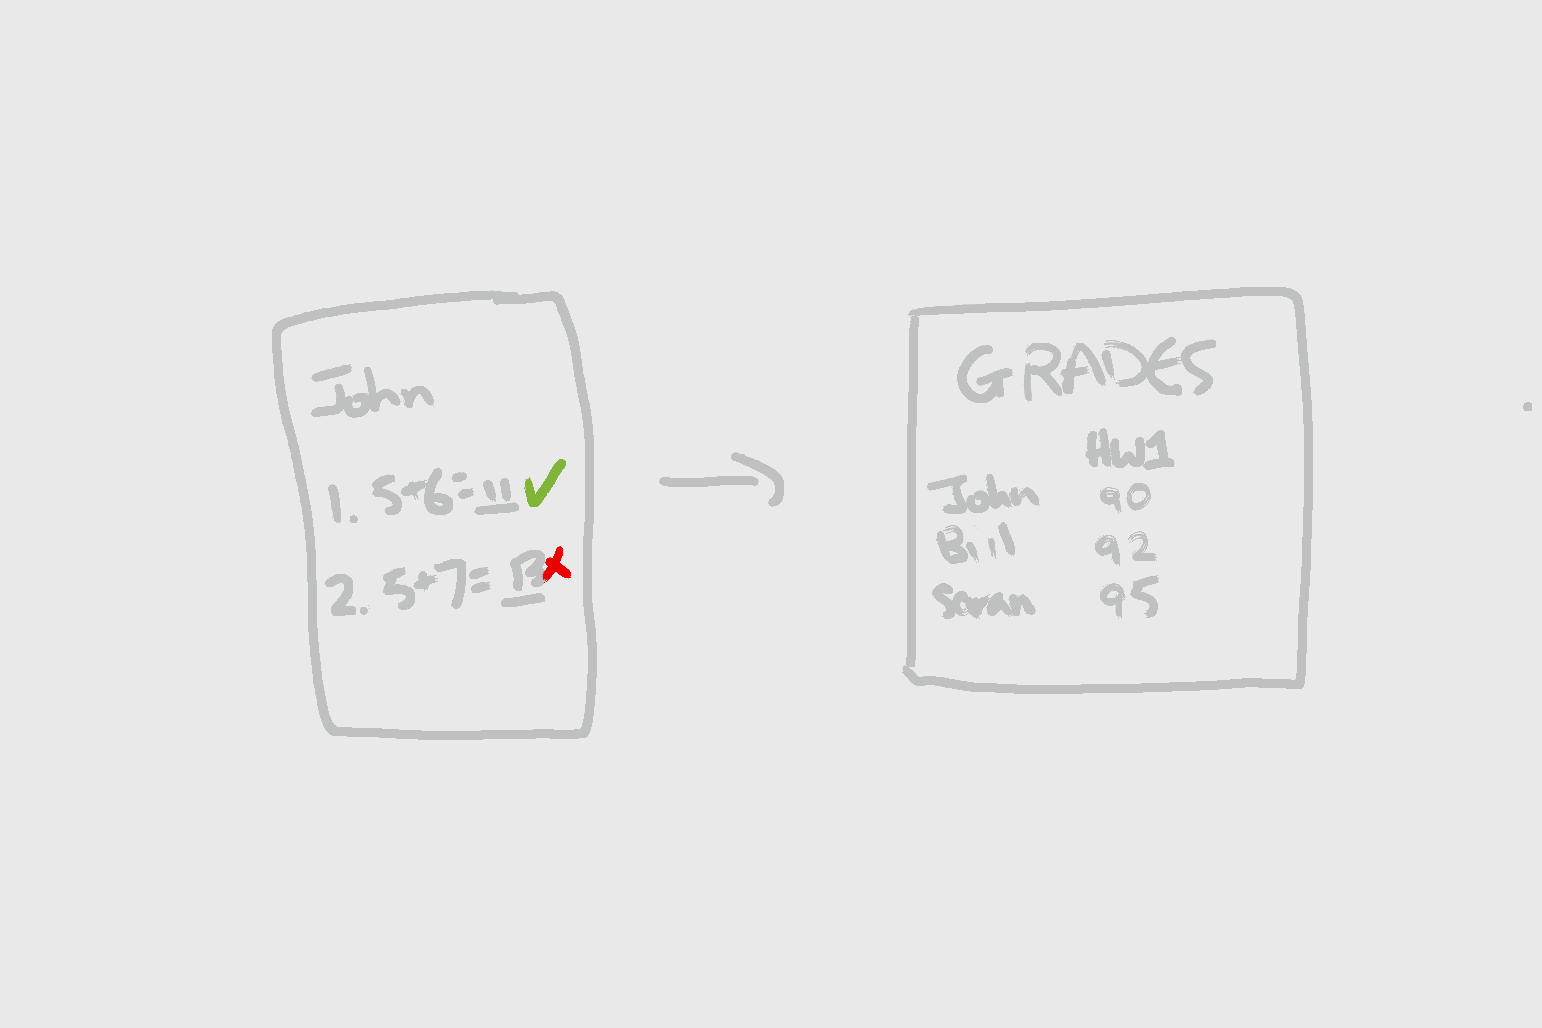 John
1. 5+6=11
2. 5+7=13
GRADES
HW1
John 90
Bill 92
Sarah 95